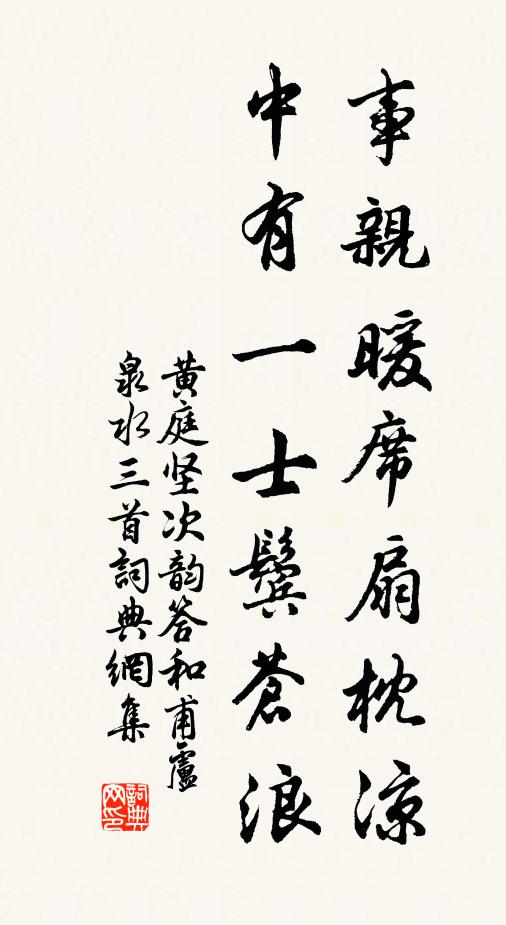 事親暖席扇枕涼
中有一士鬢蒼浪
黄庭坚次韵答和甫盧
泉水三首詞典網集
詞典网印